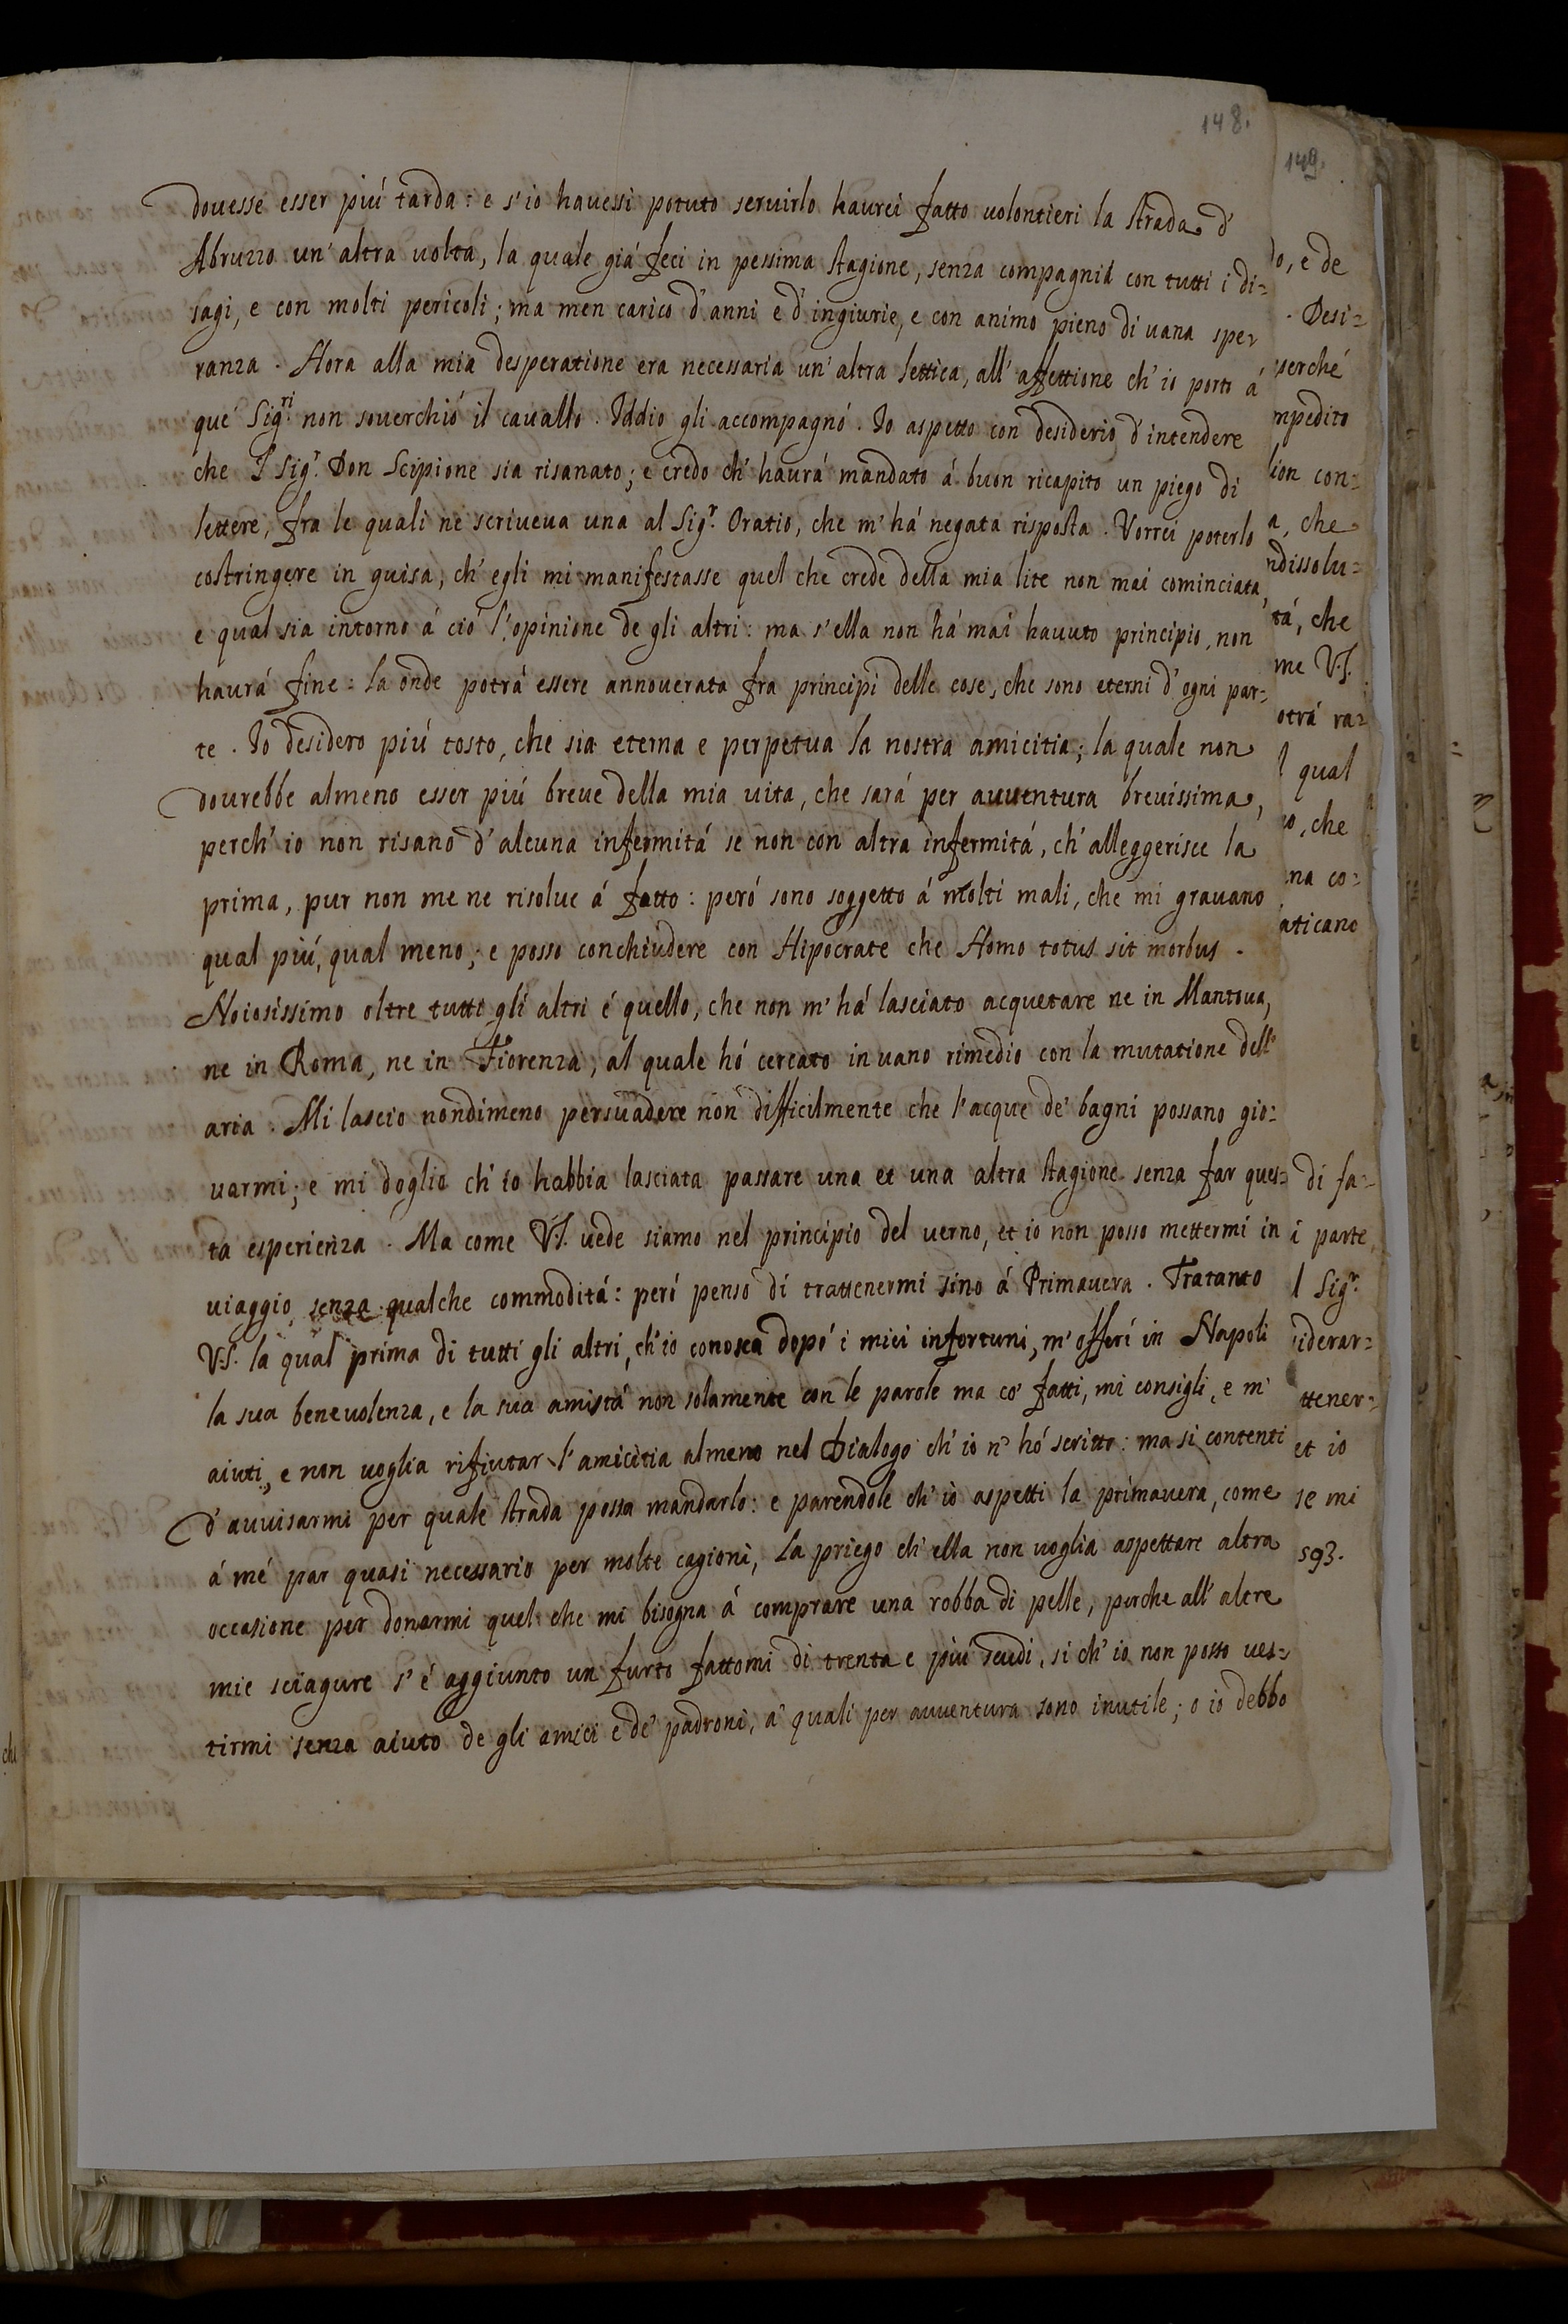 148.
douesse esser piú tarda: e s'io hauessi potuto seruirlo haurei fatto uolontieri la strada d'
Abruzzo un'altra uolta, la quale giá feci in pessima stagione, senza compagnia con tutti i di=
sagi, e con molti pericoli; ma men carico d'anni e d'ingiurie, e con animo pieno di uana spe=
ranza. Hora alla mia desperatione era necessaria un'altra lettica, all'affettione ch'io porto á
que' Sig.ri non souerchió il cauallo. Iddio gli accompagnó. Io aspetto con desiderio d'intendere
che l' Sig.r Don Scipione sia risanato; e credo ch'haurá mandato á buon ricapito un piego di
lettere, fra le quali ne scriueua una al Sig.r Oratio, che m'há negata risposta. Vorrei poterlo
costringere in guisa, ch'egli mi manifestasse quel che crede della mia lite non mai cominciata,
e qual sia intorno á ció l'opinione de gli altri: ma s'ella non há mai hauuto principio, non
haurá fine: la onde potrá essere annouerata fra principi delle cose, che sono eterni d'ogni par=
te. Io desidero piú tosto, che sia eterna e perpetua la nostra amicitia; la quale non
dourebbe almeno esser piú breue della mia uita, che sará per auuentura breuissima,
perch'io non risano d'alcuna infermitá se non con altra infermitá, ch'alleggerisce la
prima, pur non me ne risolue á fatto: peró sono soggetto á molti mali, che mi grauano
qual piú, qual meno; e posso conchiudere con Hipocrate che Homo totus sit morbus.
Noiosissimo oltre tutti gli altri é quello, che non m'há lasciato acquetare ne in Mantoua,
ne in Roma, ne in Fiorenza; al quale hó cercato in uano rimedio con la mutatione dell'
aria. Mi lascio nondimeno persuadere non difficilmente che l'acque de' bagni possano gio=
uarmi; e mi doglio ch'io habbia lasciata passare una et una altra stagione senza far ques=
ta esperienza. Ma come V.S. uede siamo nel principio del uerno, et io non posso mettermi in
uiaggio, senza qualche commoditá: peró penso di trattenermi sino á Primauera. Tratanto
V.S. la qual prima di tutti gli altri, ch'io conosca dopó i miei infortuni, m'offerí in Napoli
la sua beneuolenza, e la sua amistá non solamente con le parole ma co' fatti, mi consigli, e m'
aiuti, e non uoglia rifiutar l'amicitia almeno nel Dialogo ch'io n'hó scritto: ma si contenti
d'auuisarmi per quale strada possa mandarlo: e parendole ch'io aspetti la primauera, come
á mé par quasi necessario per molte cagioni, la priego ch'ella non uoglia aspettare altra
occasione per donarmi quel che mi bisogna á comprare una robba di pelle, perche all'altre
mie sciagure s'é aggiunto un furto fattomi di trenta e piú scudi, si ch'io non posso ues=
tirmi senza aiuto de gli amici e de' padroni, a' quali per auuentura sono inutile; o io debbo
149.
do, e de
. Desi=
perché
mpedito
lion con=
a, che
ndissolu=
tá, che
me V.S.
otrá ra=
l qual
o, che
na co=
aticano
di fa=
i parte,
l Sig.r
iderar=
ttener=
et io
se mi
593.